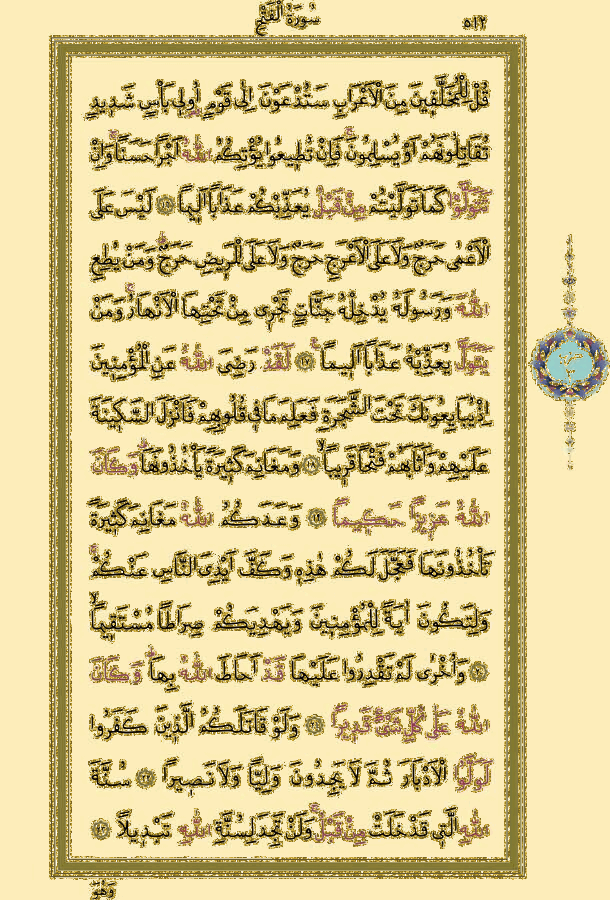 سُورَةُ الْفَتْحِ ٥١٢
قُلْ لِلْمُخَلَّفِينَ مِنَ الْاَعْرَابِ سَتُدْعَوْنَ اِلٰى قَوْمٍ اُو۬لٖي بَأْسٍ شَدٖيدٍ
تُقَاتِلُونَهُمْ اَوْ يُسْلِمُونَ فَاِنْ تُطٖيعُوا يُؤْتِكُمُ اللّٰهُ اَجْرًا حَسَنًا وَاِنْ
تَتَوَلَّوْا كَمَا تَوَلَّيْتُمْ مِنْ قَبْلُ يُعَذِّبْكُمْ عَذَابًا اَلٖيمًا ﴿١٦﴾ لَيْسَ عَلَى
الْاَعْمٰى حَرَجٌ وَلَا عَلَى الْاَعْرَجِ حَرَجٌ وَلَا عَلَى الْمَرٖيضِ حَرَجٌ وَمَنْ يُطِعِ
اللّٰهَ وَرَسُولَهُ يُدْخِلْهُ جَنَّاتٍ تَجْرٖي مِنْ تَحْتِهَا الْاَنْهَارُ وَمَنْ
يَتَوَلَّ يُعَذِّبْهُ عَذَابًا اَلٖيمًا ﴿١٧﴾ لَقَدْ رَضِيَ اللّٰهُ عَنِ الْمُؤْمِنٖينَ
اِذْ يُبَايِعُونَكَ تَحْتَ الشَّجَرَةِ فَعَلِمَ مَا فٖي قُلُوبِهِمْ فَاَنْزَلَ السَّكٖينَةَ
عَلَيْهِمْ وَاَثَابَهُمْ فَتْحًا قَرٖيبًا ﴿١٨﴾ وَمَغَانِمَ كَثٖيرَةً يَأْخُذُونَهَا وَكَانَ
اللّٰهُ عَزٖيزًا حَكٖيمًا ﴿١٩﴾ وَعَدَكُمُ اللّٰهُ مَغَانِمَ كَثٖيرَةً
تَأْخُذُونَهَا فَعَجَّلَ لَكُمْ هٰذِهٖ وَكَفَّ اَيْدِيَ النَّاسِ عَنْكُمْ
وَلِتَكُونَ اٰيَةً لِلْمُؤْمِنٖينَ وَيَهْدِيَكُمْ صِرَاطًا مُسْتَقٖيمًا
﴿٢٠﴾ وَاُخْرٰى لَمْ تَقْدِرُوا عَلَيْهَا قَدْ اَحَاطَ اللّٰهُ بِهَا وَكَانَ
اللّٰهُ عَلٰى كُلِّ شَيْءٍ قَدٖيرًا ﴿٢١﴾ وَلَوْ قَاتَلَكُمُ الَّذٖينَ كَفَرُوا
لَوَلَّوُا الْاَدْبَارَ ثُمَّ لَا يَجِدُونَ وَلِيًّا وَلَا نَصٖيرًا ﴿٢٢﴾ سُنَّةَ
اللّٰهِ الَّتٖي قَدْ خَلَتْ مِنْ قَبْلُ وَلَنْ تَجِدَ لِسُنَّةِ اللّٰهِ تَبْدٖيلًا ﴿٢٣﴾
وَهُوَ